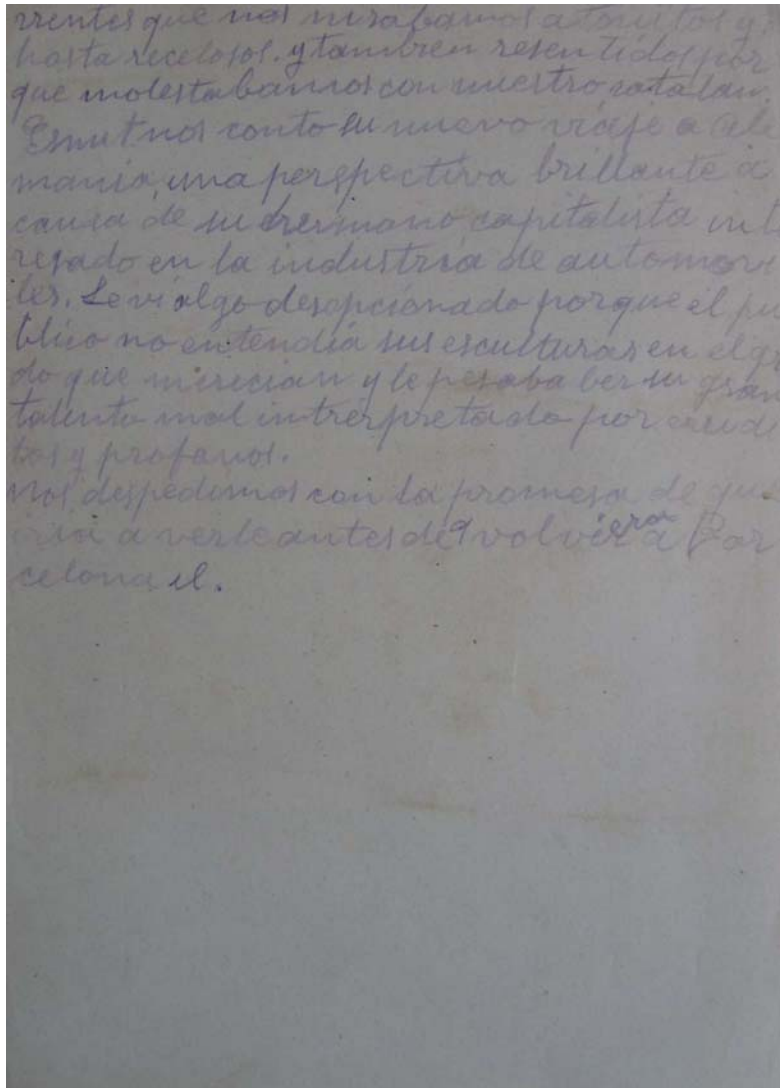 rrentes que nos mirabamos atonitos y
hasta recelosos. y tambien resentidos por
que molestabamos con nuestro catalan.
Esmut nos conto su nuevo viaje a Ale
mania, una perspectiva brillante a
causa de su hermano capitalista inte
resado en la industria de automovi
les. Le vi algo desepcionado porque el pu
blico no entendia sus esculturas en el gra
do que merecian y le pesaba ber su gran
talento mal intrerpretado por erudi
tos y profanos.
Nos despedomos con la promesa de que
iria a verle antes de q volviera a Bar
celona el.